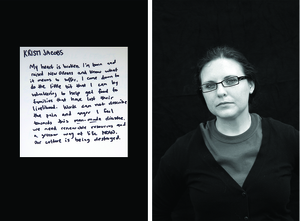 KRISTI JACOBS
My heart is broken. I'm born and
raised New Orleans and know what
it means to suffer. I came down to
do the little bit that I can by
volunteering to help get food to
families that have lost their
livelihood. Words can not describe
the pain and anger I feel
towards this man-made disaster.
we need renewable resources and
a greener way of life. NOW.
Our culture is being destroyed.